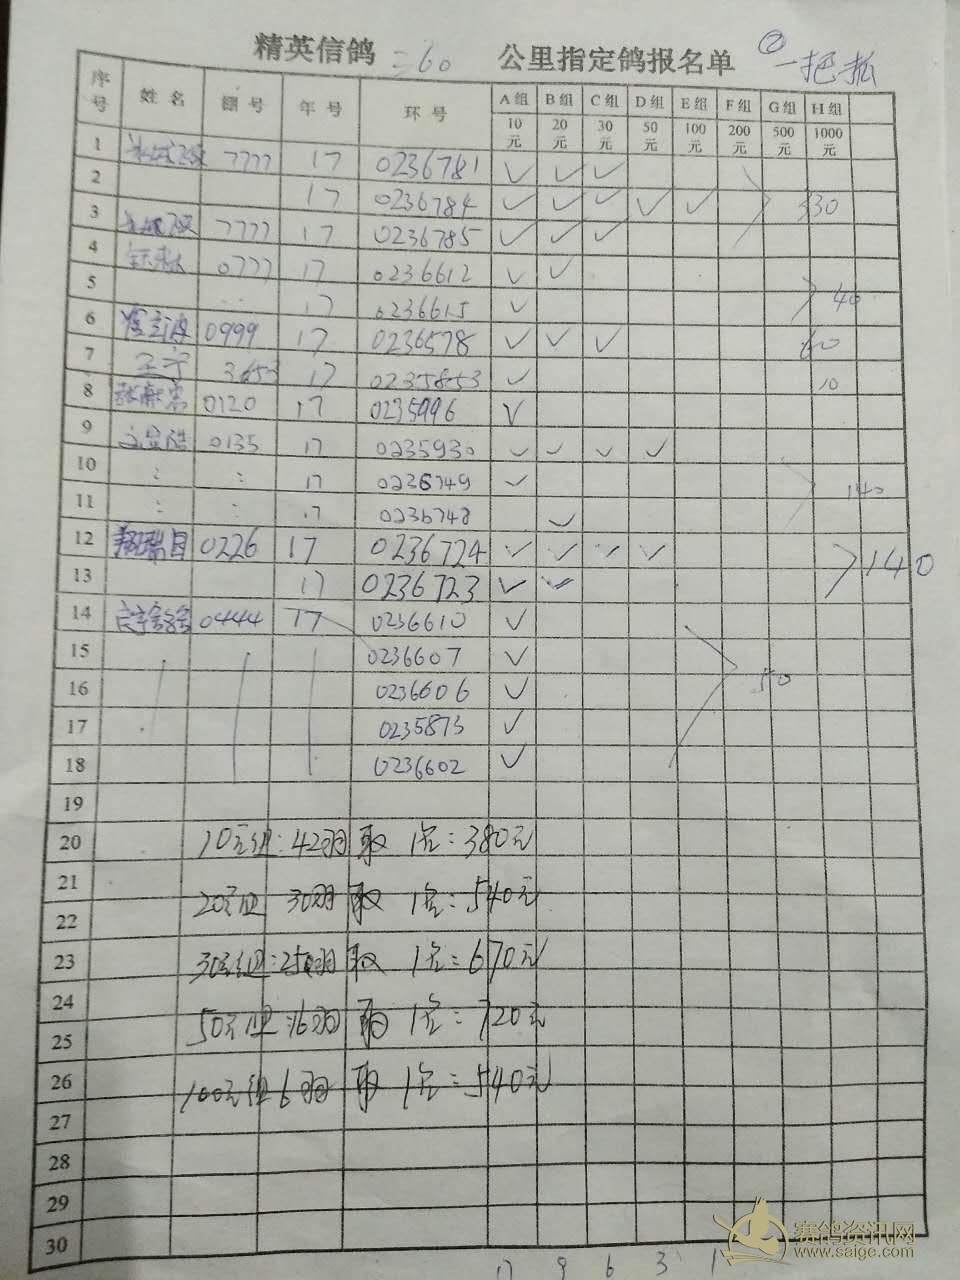 精英信鸽 二60 公里指定鸽报名单 ② 一把抓
序号 姓名 棚号 年号 环号 A组 B组 C组 D组 E组 F组 G组 H组
10元 20元 30元 50元 100元 200元 500元 1000元
1 7777 17 0236781 ✓ ✓ ✓
2 17 0236784 ✓ ✓ ✓ ✓ ✓ 330
3 7777 17 0236785 ✓ ✓ ✓
4 0777 17 0236612 ✓ ✓
5 17 0236615 ✓ 40
6 0999 17 0236578 ✓ ✓ ✓ 60
7 王宁 17 0235853 ✓ 10
8 0120 17 0235996 ✓
9 0135 17 0235930 ✓ ✓ ✓ ✓
10 : : 17 0236749 ✓ 140
11 : : 17 0236748 ✓
12 0226 17 0236724 ✓ ✓ ✓ ✓ 140
13 17 0236723 ✓ ✓
14 0444 17 0236610 ✓
15 0236607 ✓
16 0236606 ✓ 50
17 0235873 ✓
18 0236602 ✓
19
20 10元组:42羽 取 1名:380元
21
20元组 30羽 取 1名:540元
22
23 30元组:25羽 取 1名:670元
24
50元组:16羽 取 1名:720元
25
26 100元组 6羽 取 1名:540元
27
28
29
30
17 9 6 3 1
赛鸽资讯网
www.saige.com